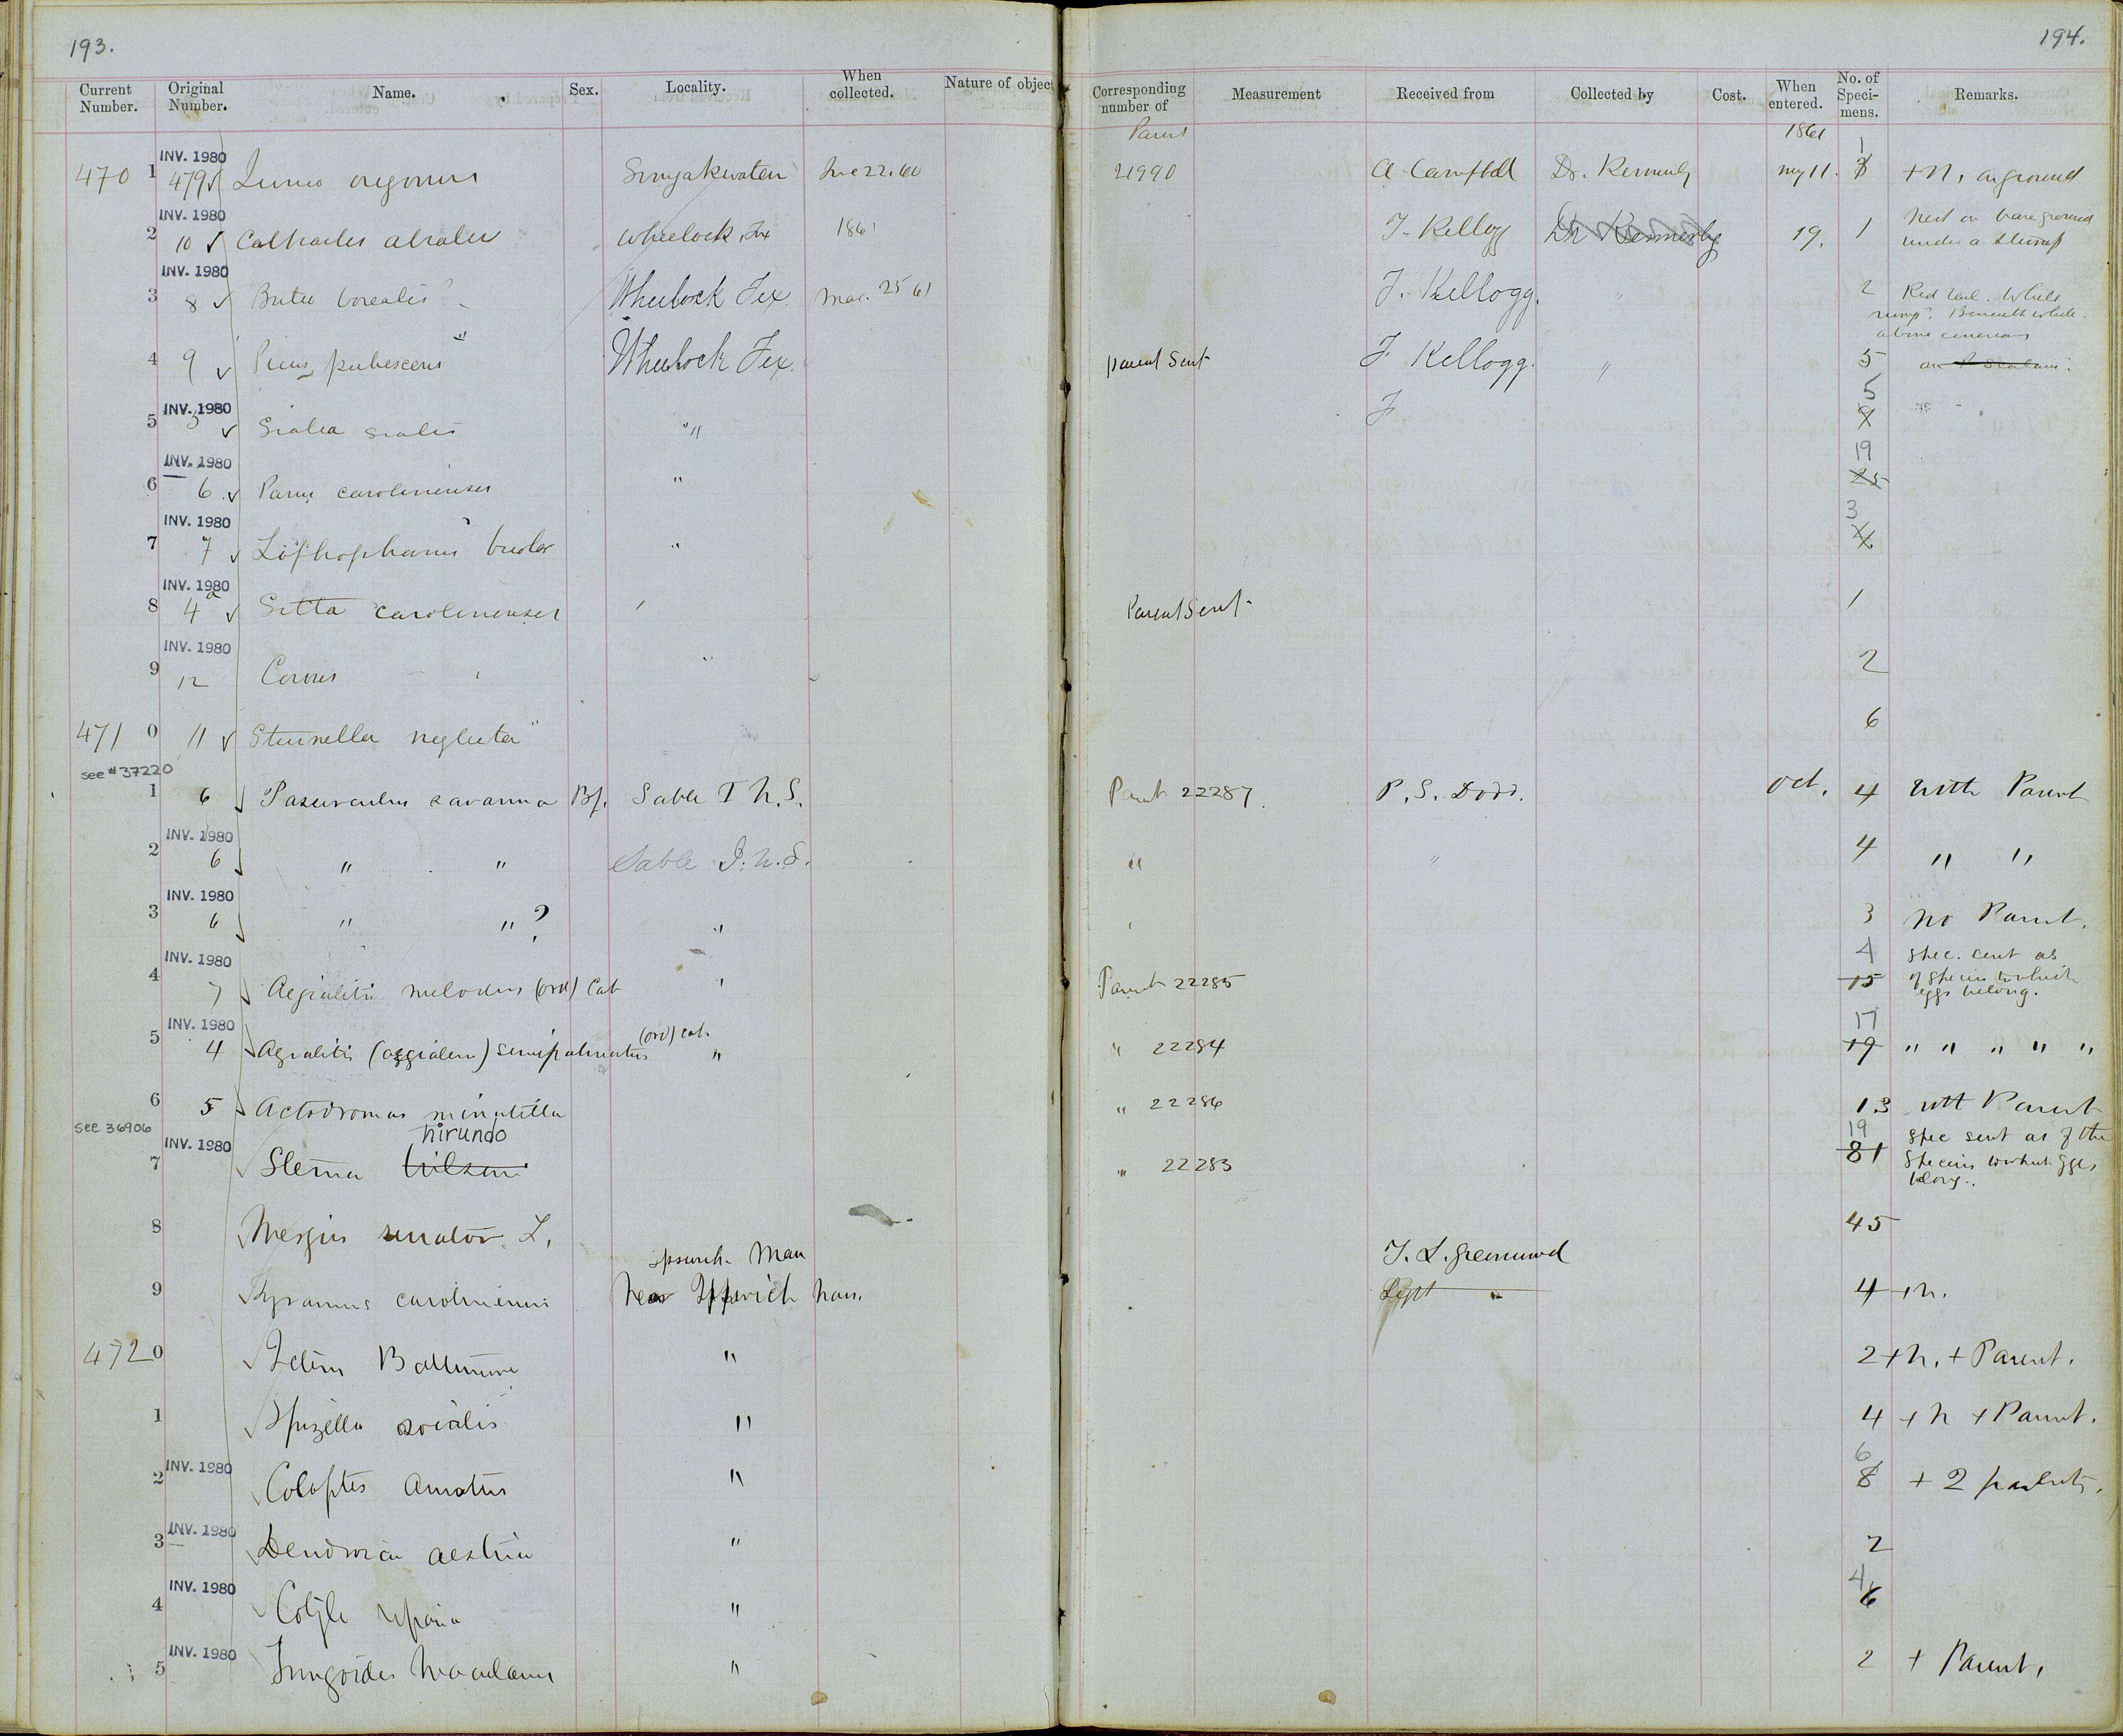 193.
194.
Current Number. Original Number. Name. Sex. Locality. When collected. Nature of objec
Corresponding number of Measurement Received from Collected by Cost. When entered. No. of Speci- mens. Remarks.
Parent 1861
INV. 1980 1
470 1 479 Junco oregonus June 22. 60 21990 A Campbell Dr. Kennerly May 11. 3 + N. on ground
INV. 1980
2 10 Cathartes atratus Wheelock, Tex 1861 F. Kellogg Dr Kennerly 19. 1 Nest on bare ground
under a stump
INV. 1980
3 8 Buteo borealis? Wheelock Tex. Mar. 25 61 F. Kellogg. " 2 Red tail. White
rump. Beneath white.
above cinereous
4 9 Picus pubescens Wheelock Tex. Parent Sent F Kellogg. " 5 or P. Scalaris.
INV. 1980 5
5 3 Sialia sialis " F
INV. 1980 19
6 6 Parus carolinensis " 25
INV. 1980 3
7 7 Lophophanus bicolor " 4
INV. 1980
8 4 a Sitta carolinensis Parent Sent 1
INV. 1980
9 12 Corvus " 2
471 0 11 Sturnella neglecta 6
see # 37220
1 6 Passerculus savanna Sable I N.S. Parent 22287. P. S. Dodd. Oct. 4 With Parent
INV. 1980
2 6 " " Sable I. N. S. " " 4 " "
INV. 1980
3 6 " " ? " 3 No Parent.
INV. 1980 4 Spec. sent as
4 7 Aegialitis melodus (Ord) Cab " Parent 22285 15 of species to which
eggs belong.
INV. 1980 (Ord) Cab. 17
5 4 Agialitis (aegialeus) semipalmatus " " 22284 19 " " " " "
6 5 Actodromas minutilla " 22286 13 with Parent
see 36906 hirundo 19 Spec sent as of the
INV. 1980
7 Sterna wilsoni " 22283 81 Species to which Eggs
belong.
8 Mergus serrator. L. 45
Ipswich. Mass J. L. Greenwood
9 Tyrannus carolinensis Near Ippswich Mass. 4 + N.
472 0 Icterus Baltimore " 2 + N. + Parent.
1 Spizella socialis " 4 + N + Parent.
INV. 1980 6
2 Colaptes auratus " 8 + 2 parents.
INV. 1980
3 Dendroica aestiva " 2
INV. 1980 4
4 Cotyle riparia " 6
INV. 1980
5 Tringoides macularius " 2 + Parent.